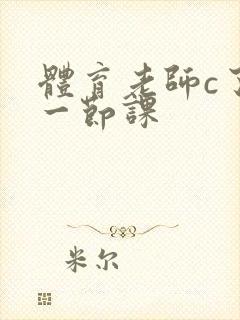 體育老師c了
一節課
米尔